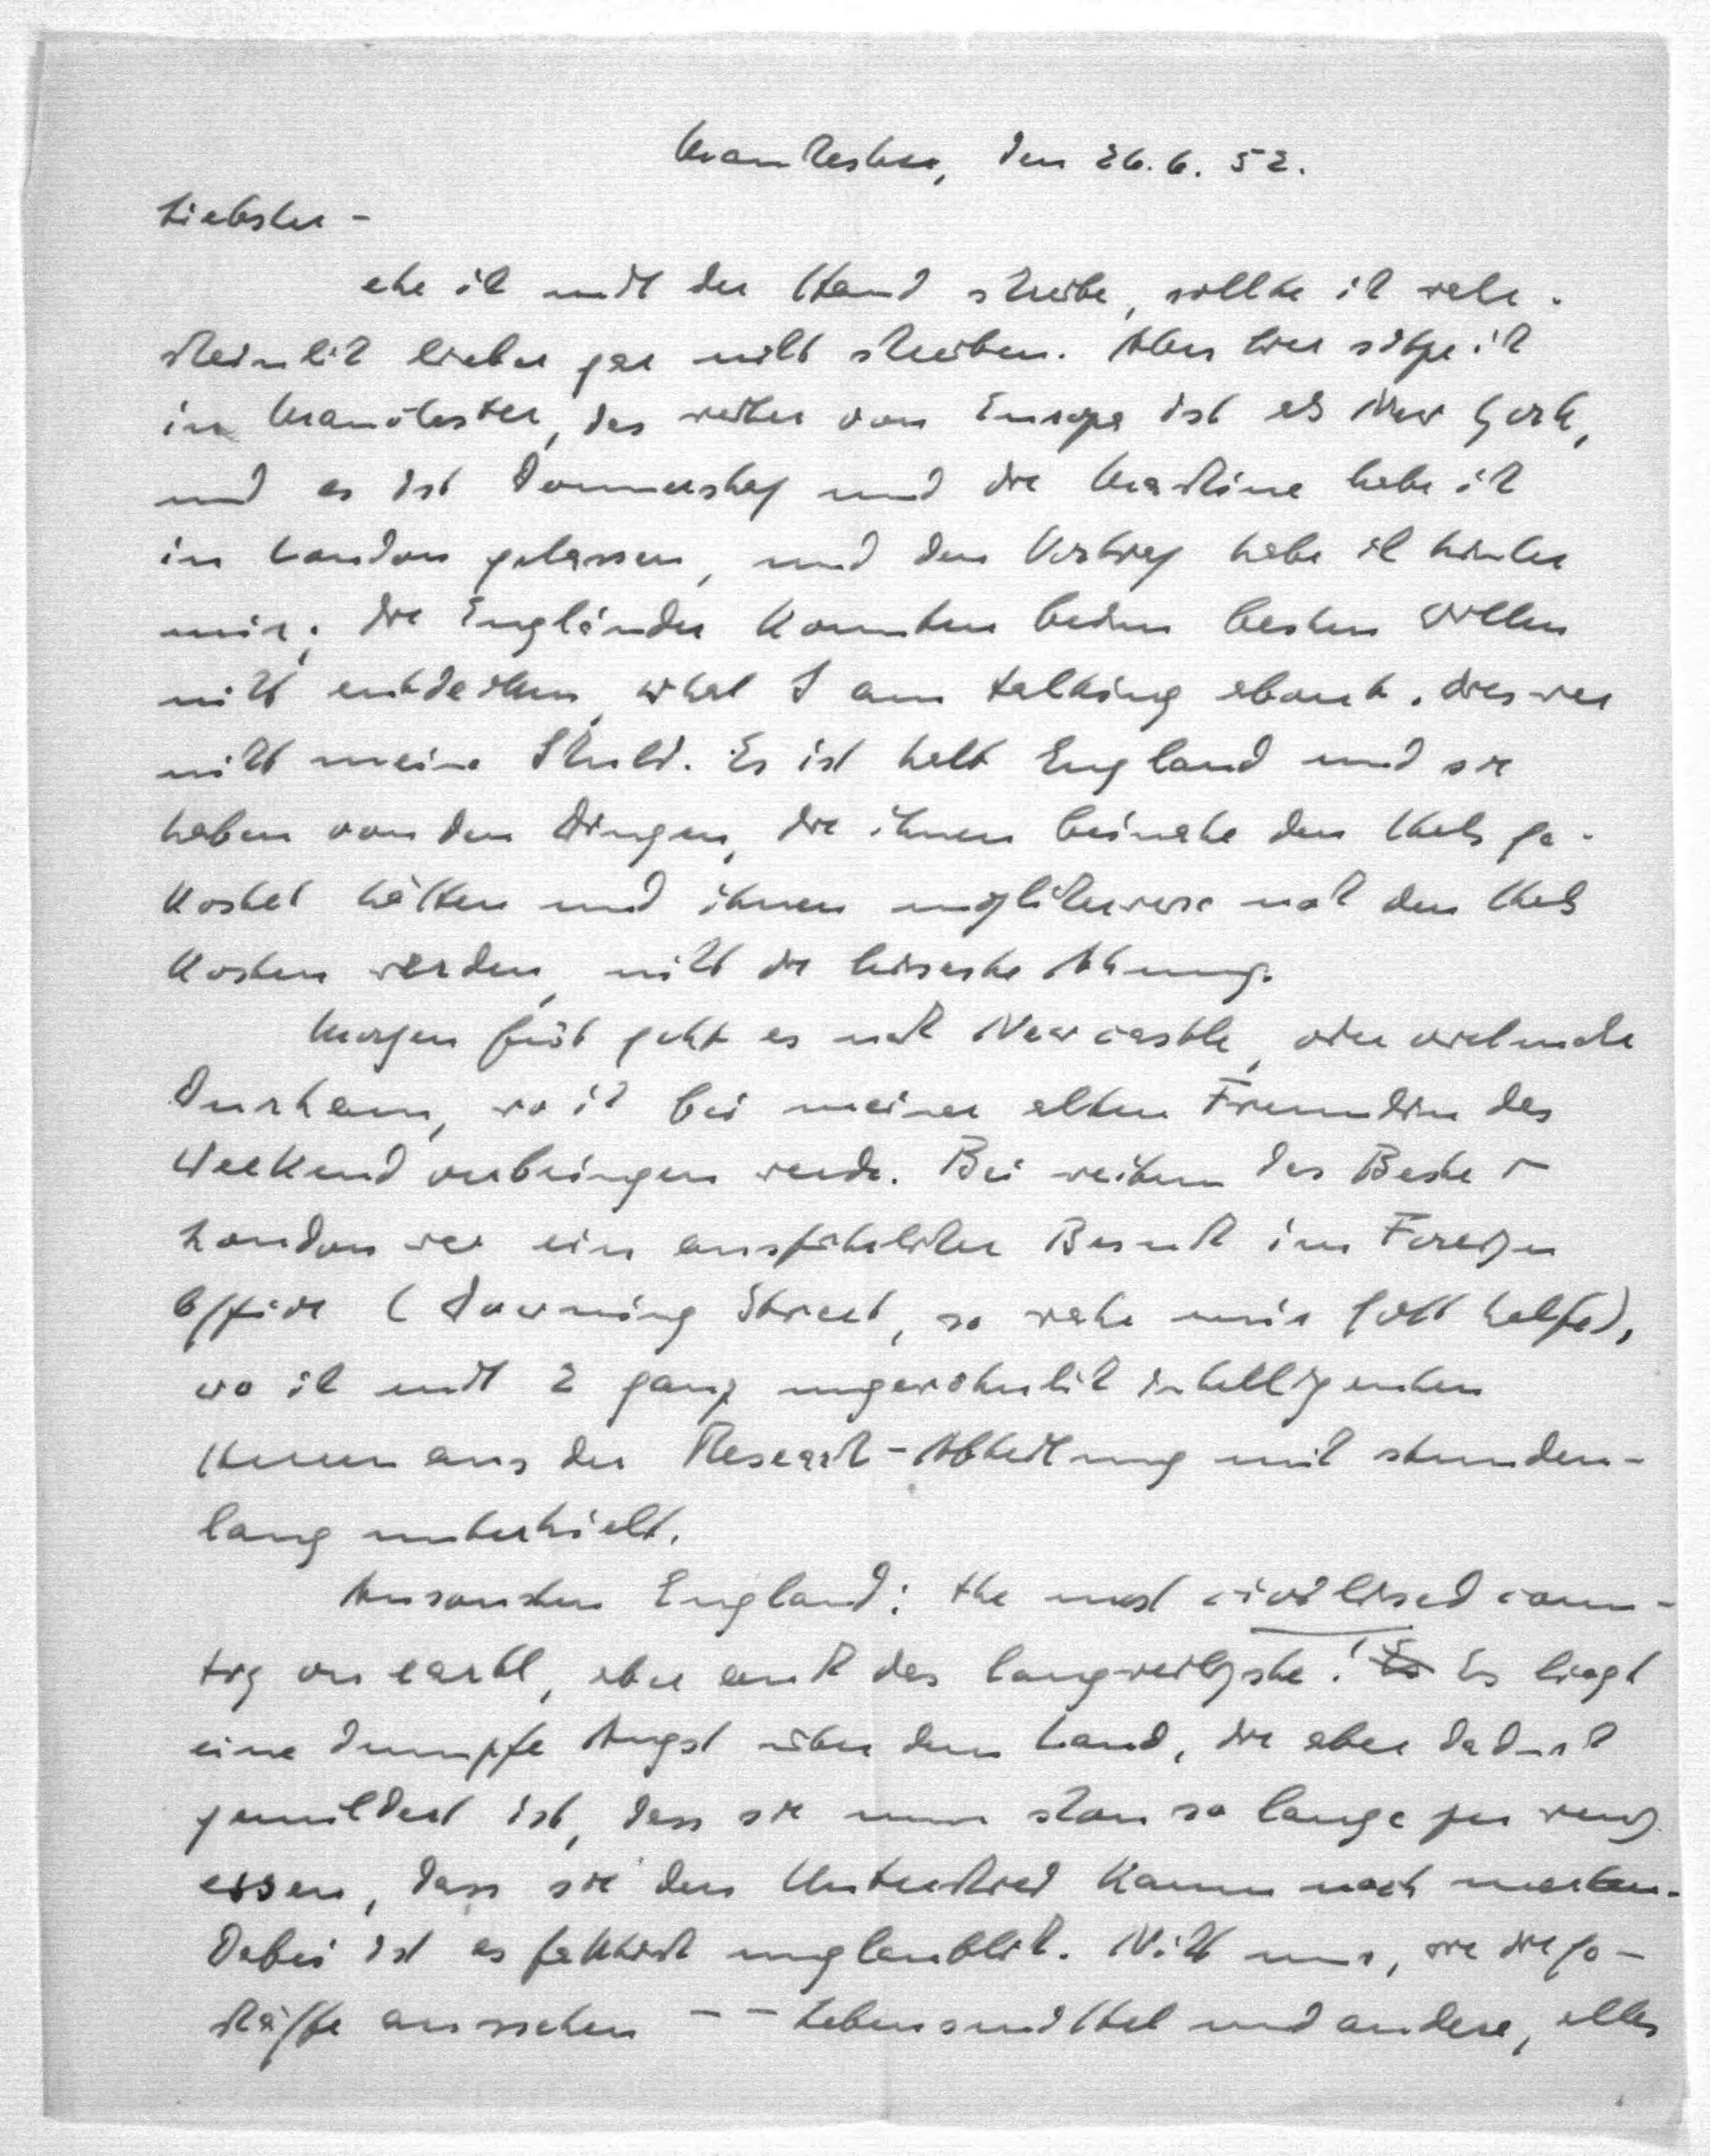 Manchester, den 26.6.52.
Liebster –
ehe ich mit der Hand schreibe, sollte ich wahr-
scheinlich lieber gar nicht schreiben. Aber hier sitze ich
in Manchester, das weiter von Europa ist als New York,
und es ist Donnerstag und die Maschine habe ich
in London gelassen, und den Vortrag habe ich hinter
mir; die Engländer konnten beim besten Willen
nicht entdecken, what I am talking about. Dies war
nicht meine Schuld. Es ist halt England und sie
haben von den Dingen, die ihnen beinahe den Hals ge-
kostet hätten und ihnen möglicherweise noch den Hals
kosten werden, nicht die leiseste Ahnung.
Morgen früh geht es nach Newcastle, oder vielmehr
Durham, wo ich bei meiner alten Freundin das
Weekend verbringen werde. Bei weitem das Beste in
London war ein ausführlicher Besuch im Foreign
Office (Downing Street, so wahr mir Gott helfe),
wo ich mit 2 ganz ungewöhnlich intelligenten
Herren aus der Research-Abteilung mich stunden-
lang unterhielt.
Ansonsten England: the most civilised coun-
try on earth, aber auch das langweiligste! Es liegt
eine dumpfe Angst über dem Land, die aber dadurch
gemildert ist, dass sie nun schon so lange zu wenig
essen, dass sie den Unterschied kaum noch merken.
Dabei ist es faktisch unglaublich. Nicht nur, wie die Ge-
schäfte aussehen – – Lebensmittel und andere, alles